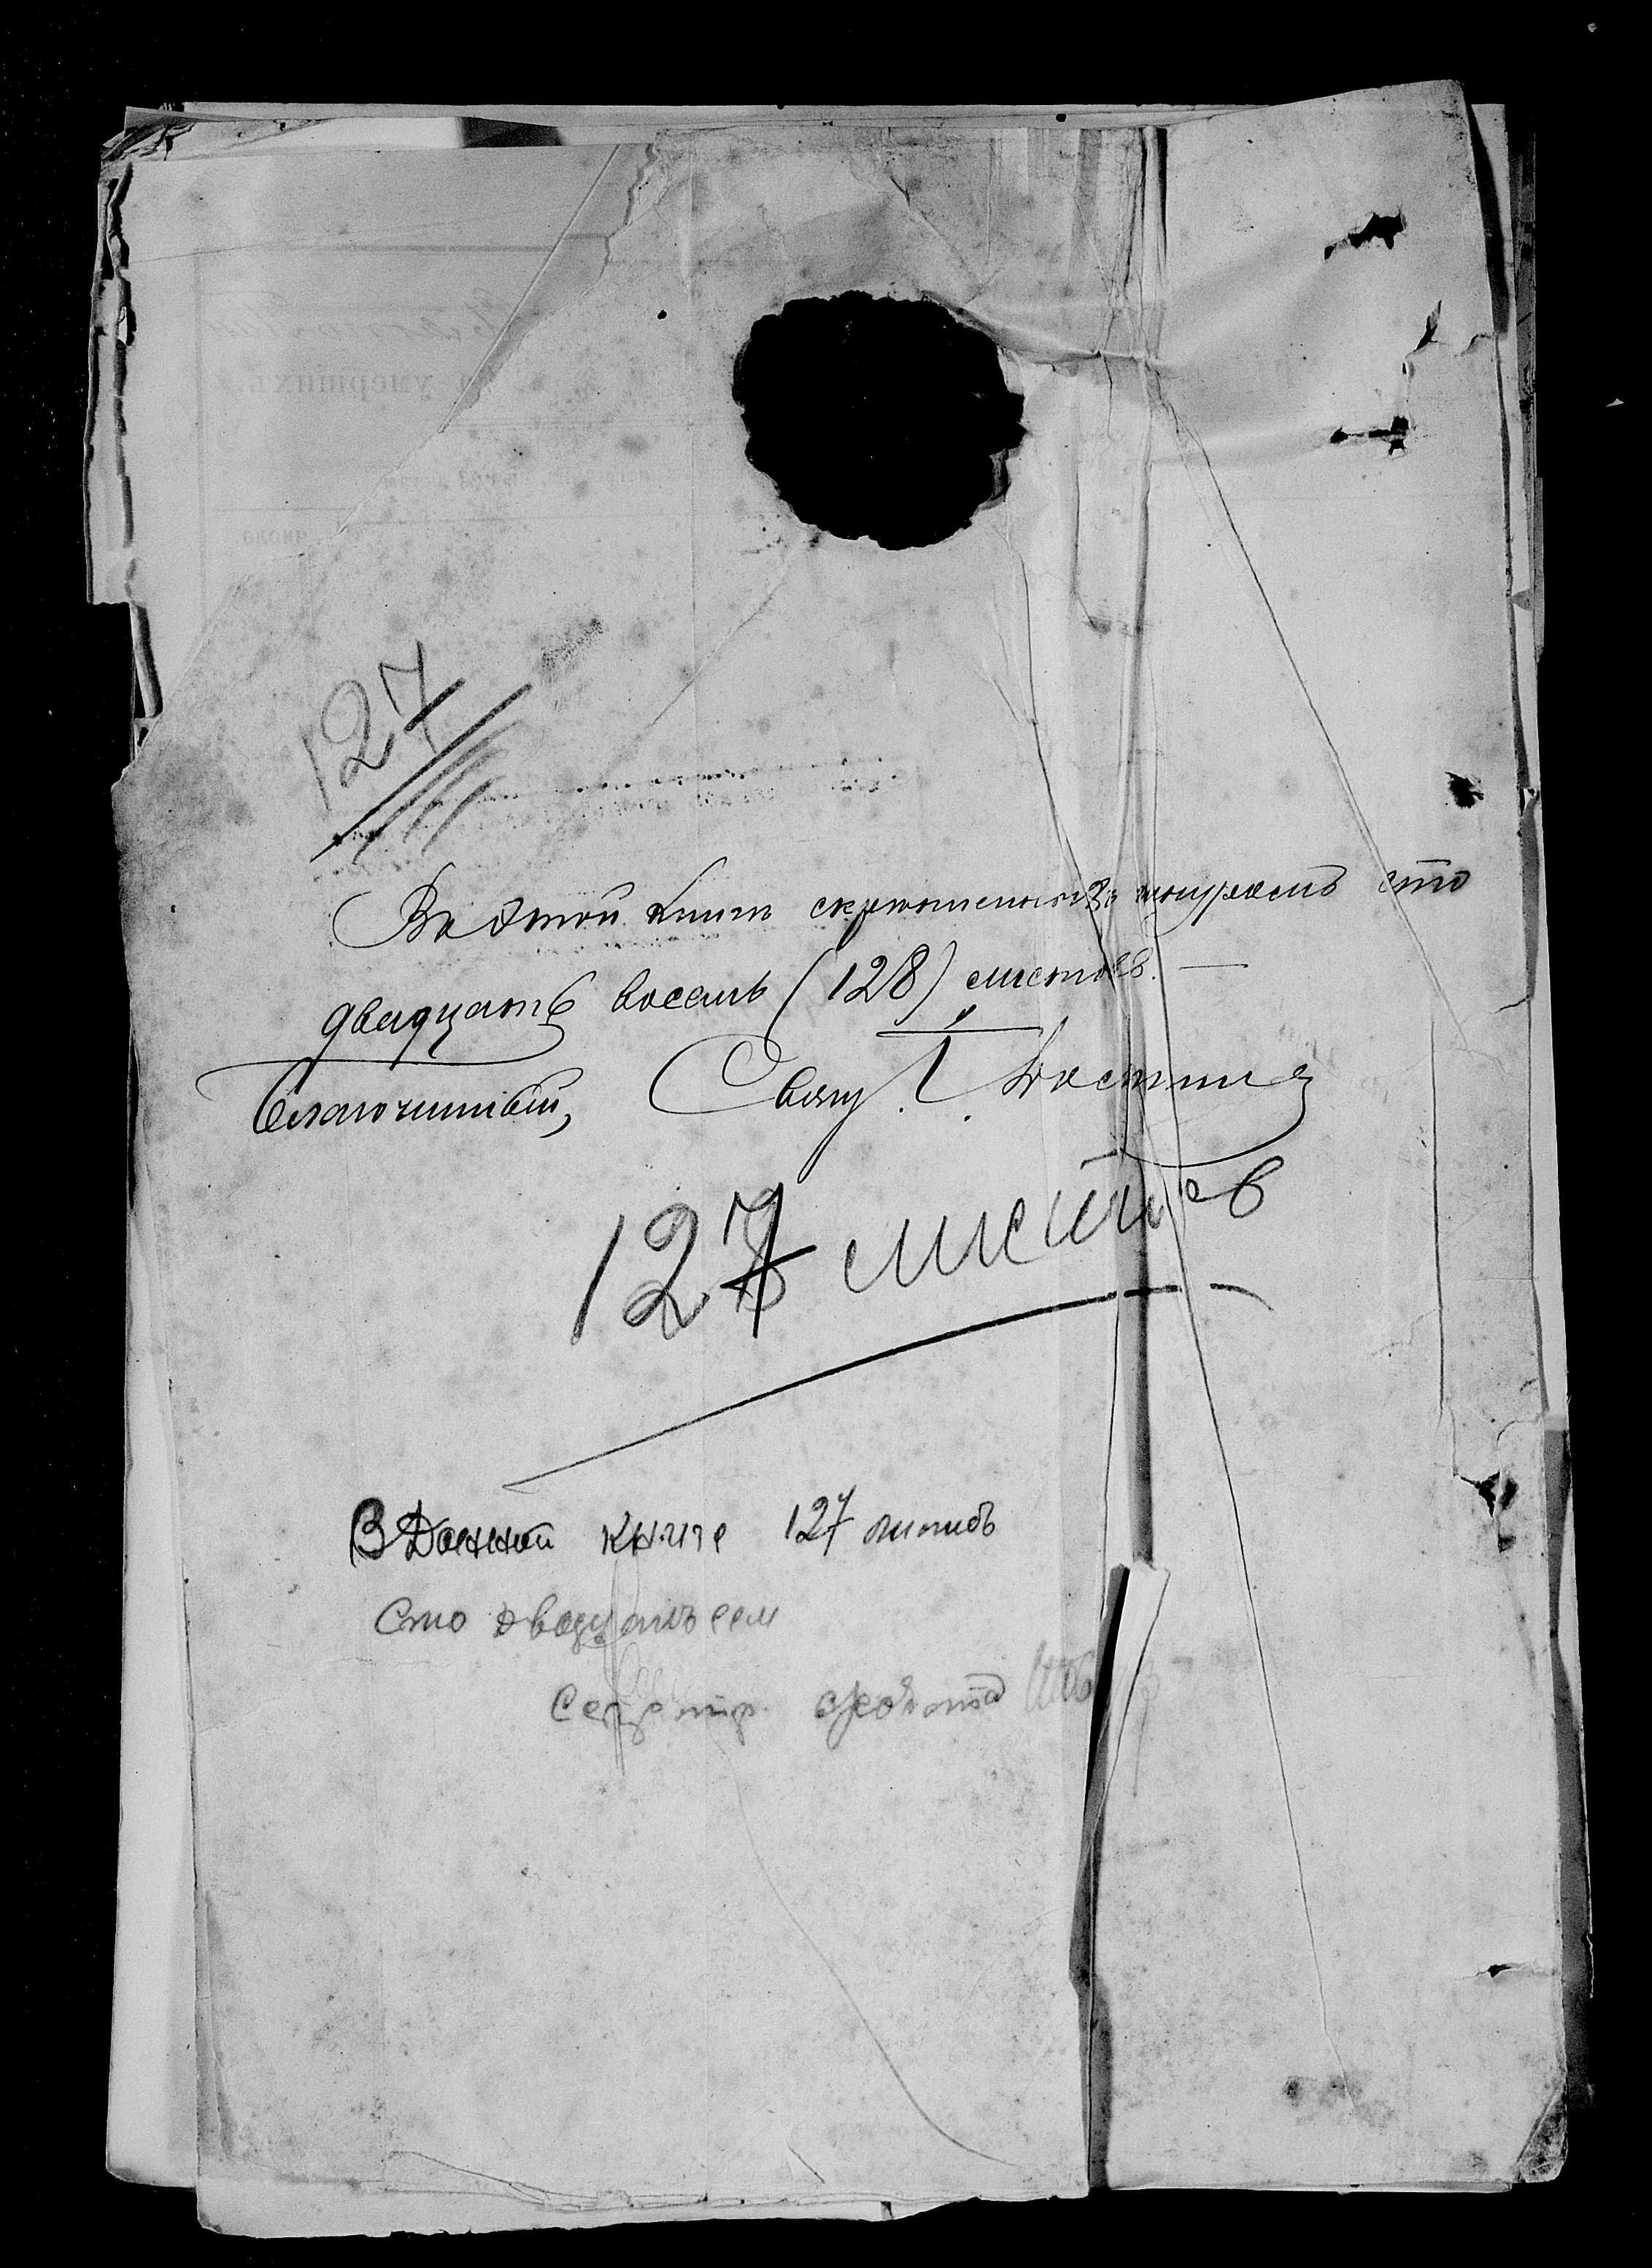 умершихъ.
число
127
Въ этой книгѣ скрѣпленныхъ шнуромъ сто
двадцать восемь (128) листовъ. —
Благочинный, Свящ. І.
127 листов
В Данной книге 127 листов
Сто двадцать сем
Секретр.